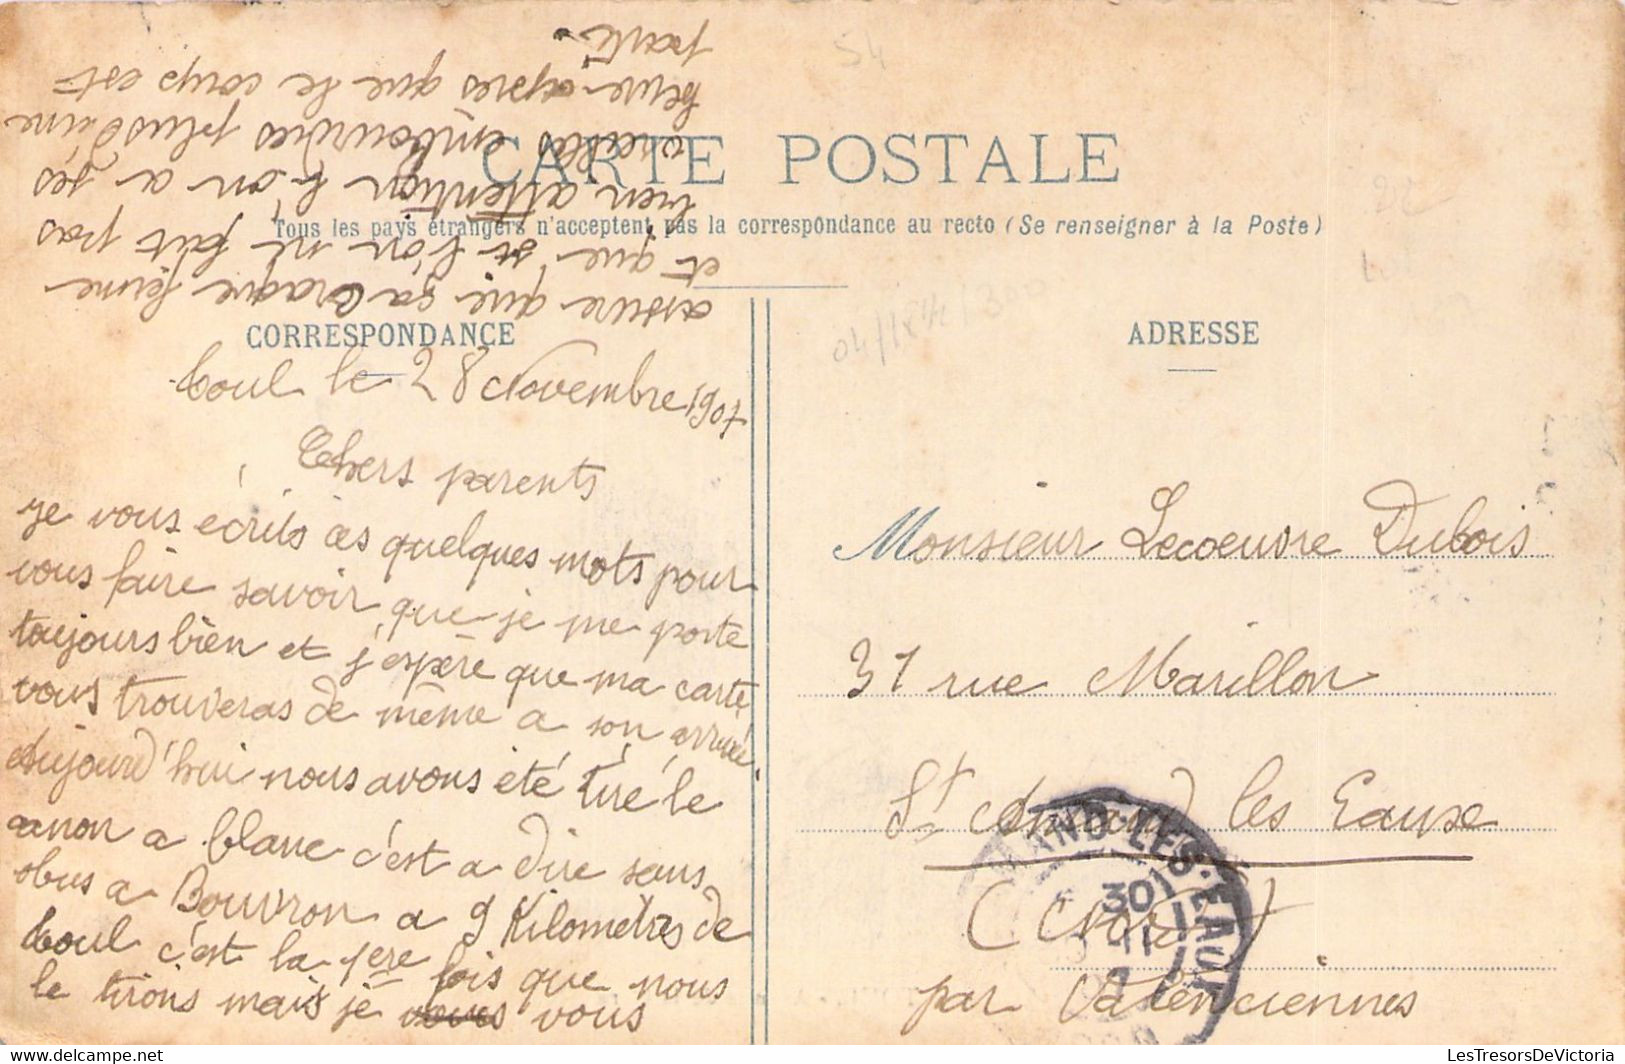 CARTE POSTALE
Tous les pays étrangers n'acceptent pas la correspondance au recto (Se renseigner à la Poste)
CORRESPONDANCE
Toul le 28 Novembre 1907
Chers parents
je vous écrits ces quelques mots pour
vous faire savoir que je me porte
toujours bien et j'espère que ma carte
vous trouveras de même a son arrivé.
Aujourd'hui nous avons été tiré le
canon a blanc c'est a dire sans
obus a Bouvron a 9 Kilometres de
Toul c'est la 1ere fois que nous
le tirons mais je vous vous
assure que sa craque ferme
et que si l'on ne fait pas
bien attention l'on a ses
oreilles embourdres plus d'une
heure apres que le coup est
parti.
ADRESSE
Monsieur Lecoeuvre Dubois
31 rue Marillon
St Amand les Eaux
(Nord)
par Valenciennes
AMAND-LES-EAUX
30
11
54
LesTresorsDeVictoria